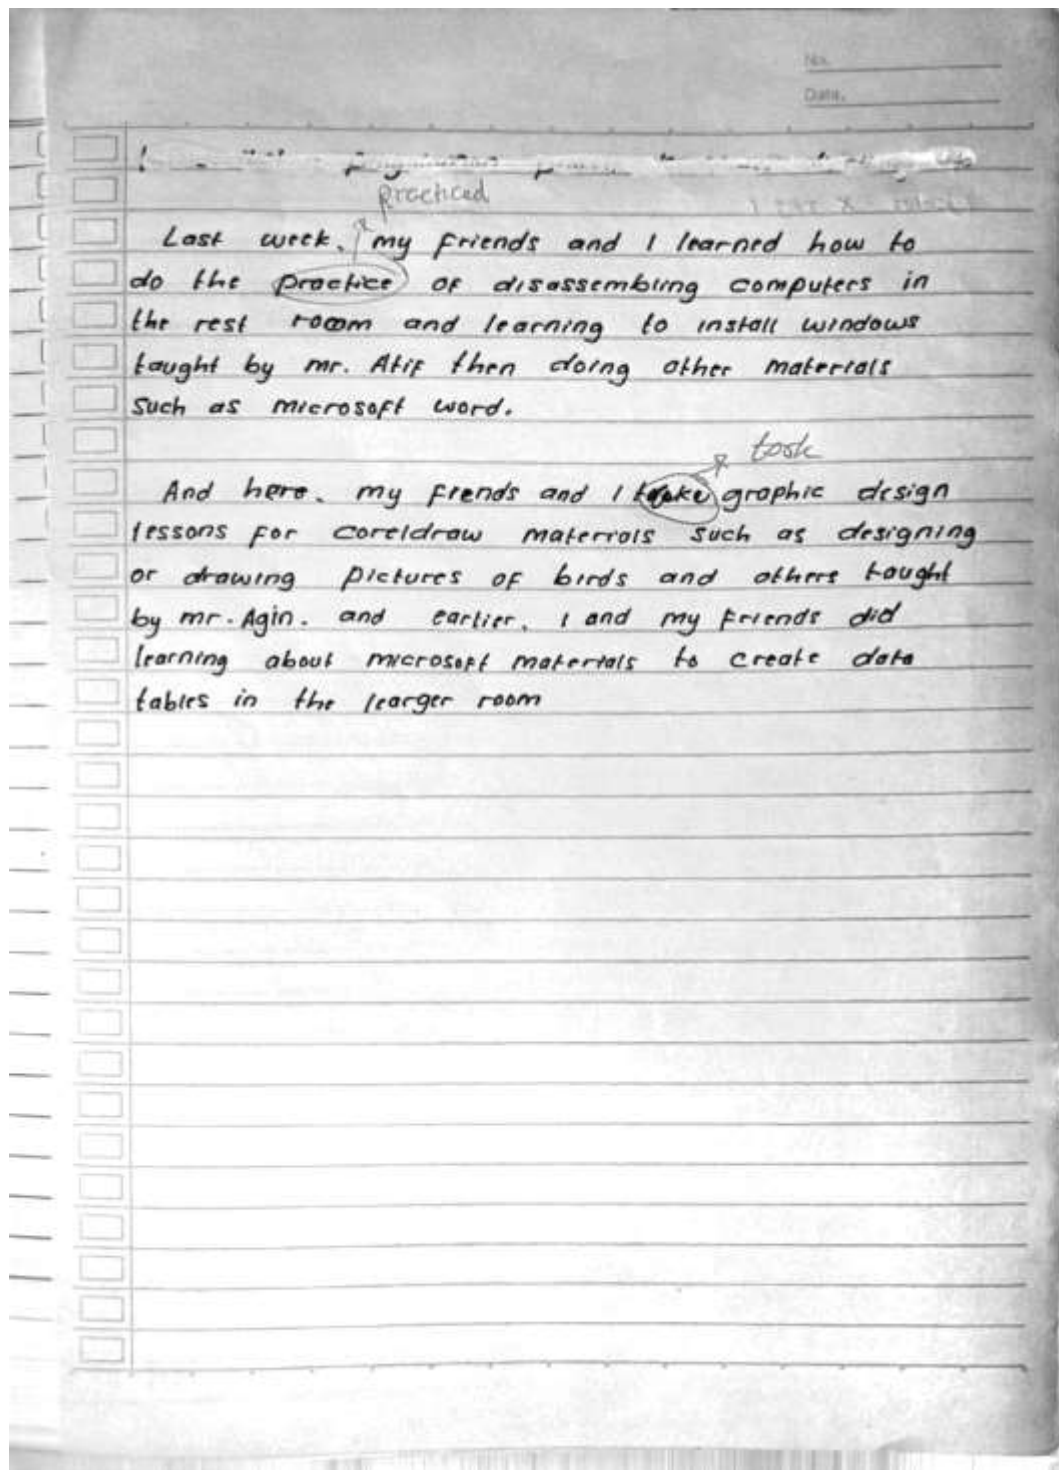 No.
Date.
practiced
Last week, my friends and I learned how to
do the practice of disassembling computers in
the rest room and learning to install windows
taught by mr. Atif then doing other materials
such as microsoft word.
took
And here, my frends and I take graphic design
lessons for coreldraw materials such as designing
or drawing pictures of birds and others taught
by mr. Agin. and earlier, I and my friends did
learning about microsoft materials to create data
tables in the learger room